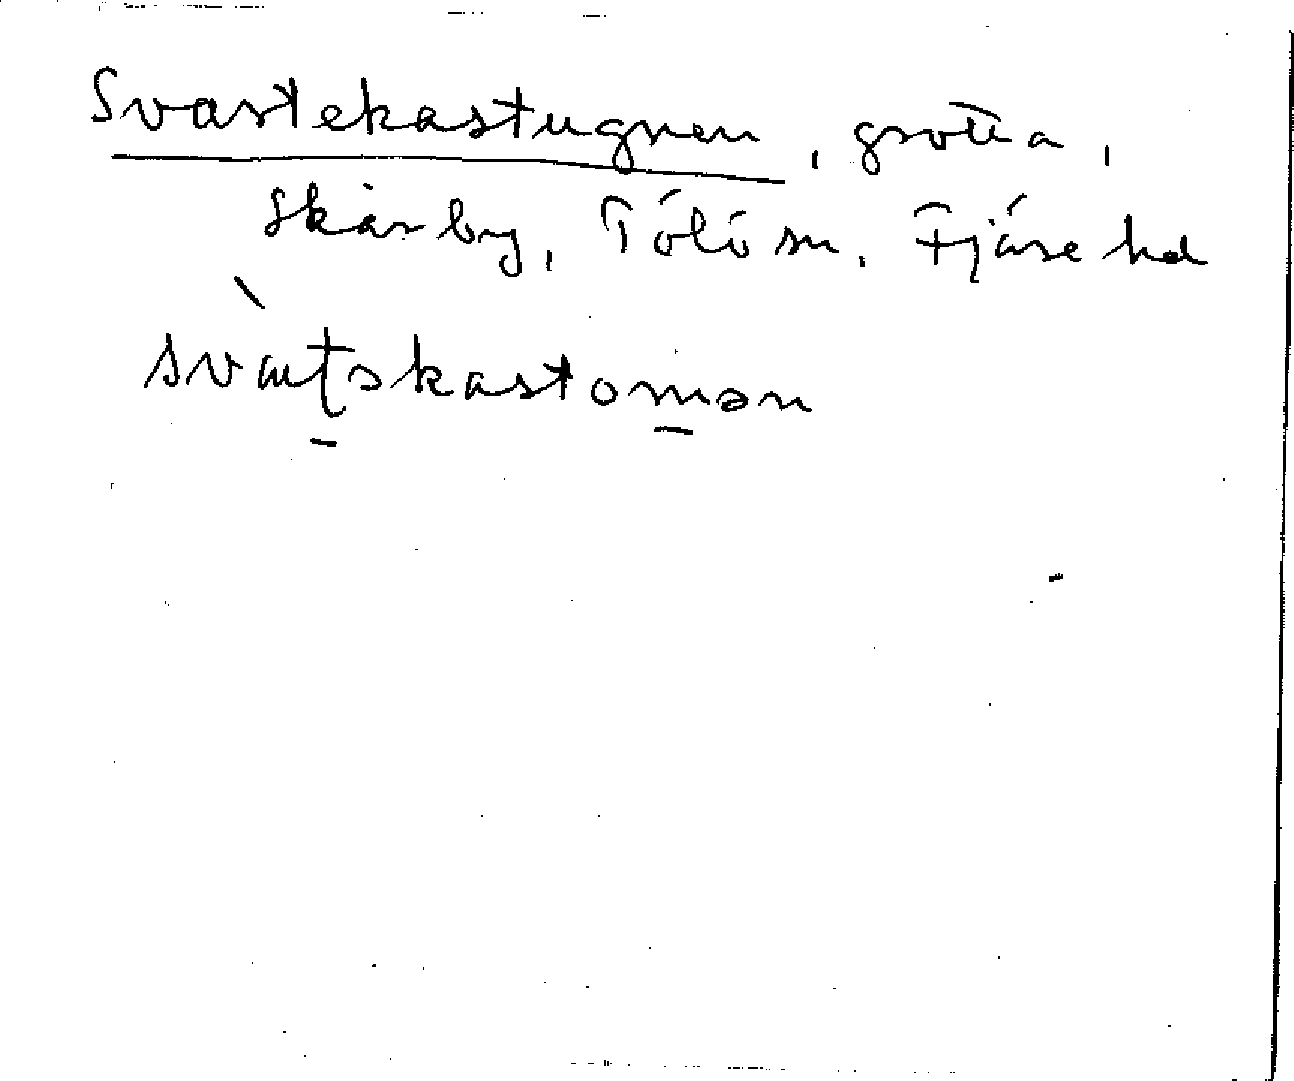 Svartekastugnen, grotta,
Skårby, Tölö sn. Fjäre hd
svat̠əkastom̠ən